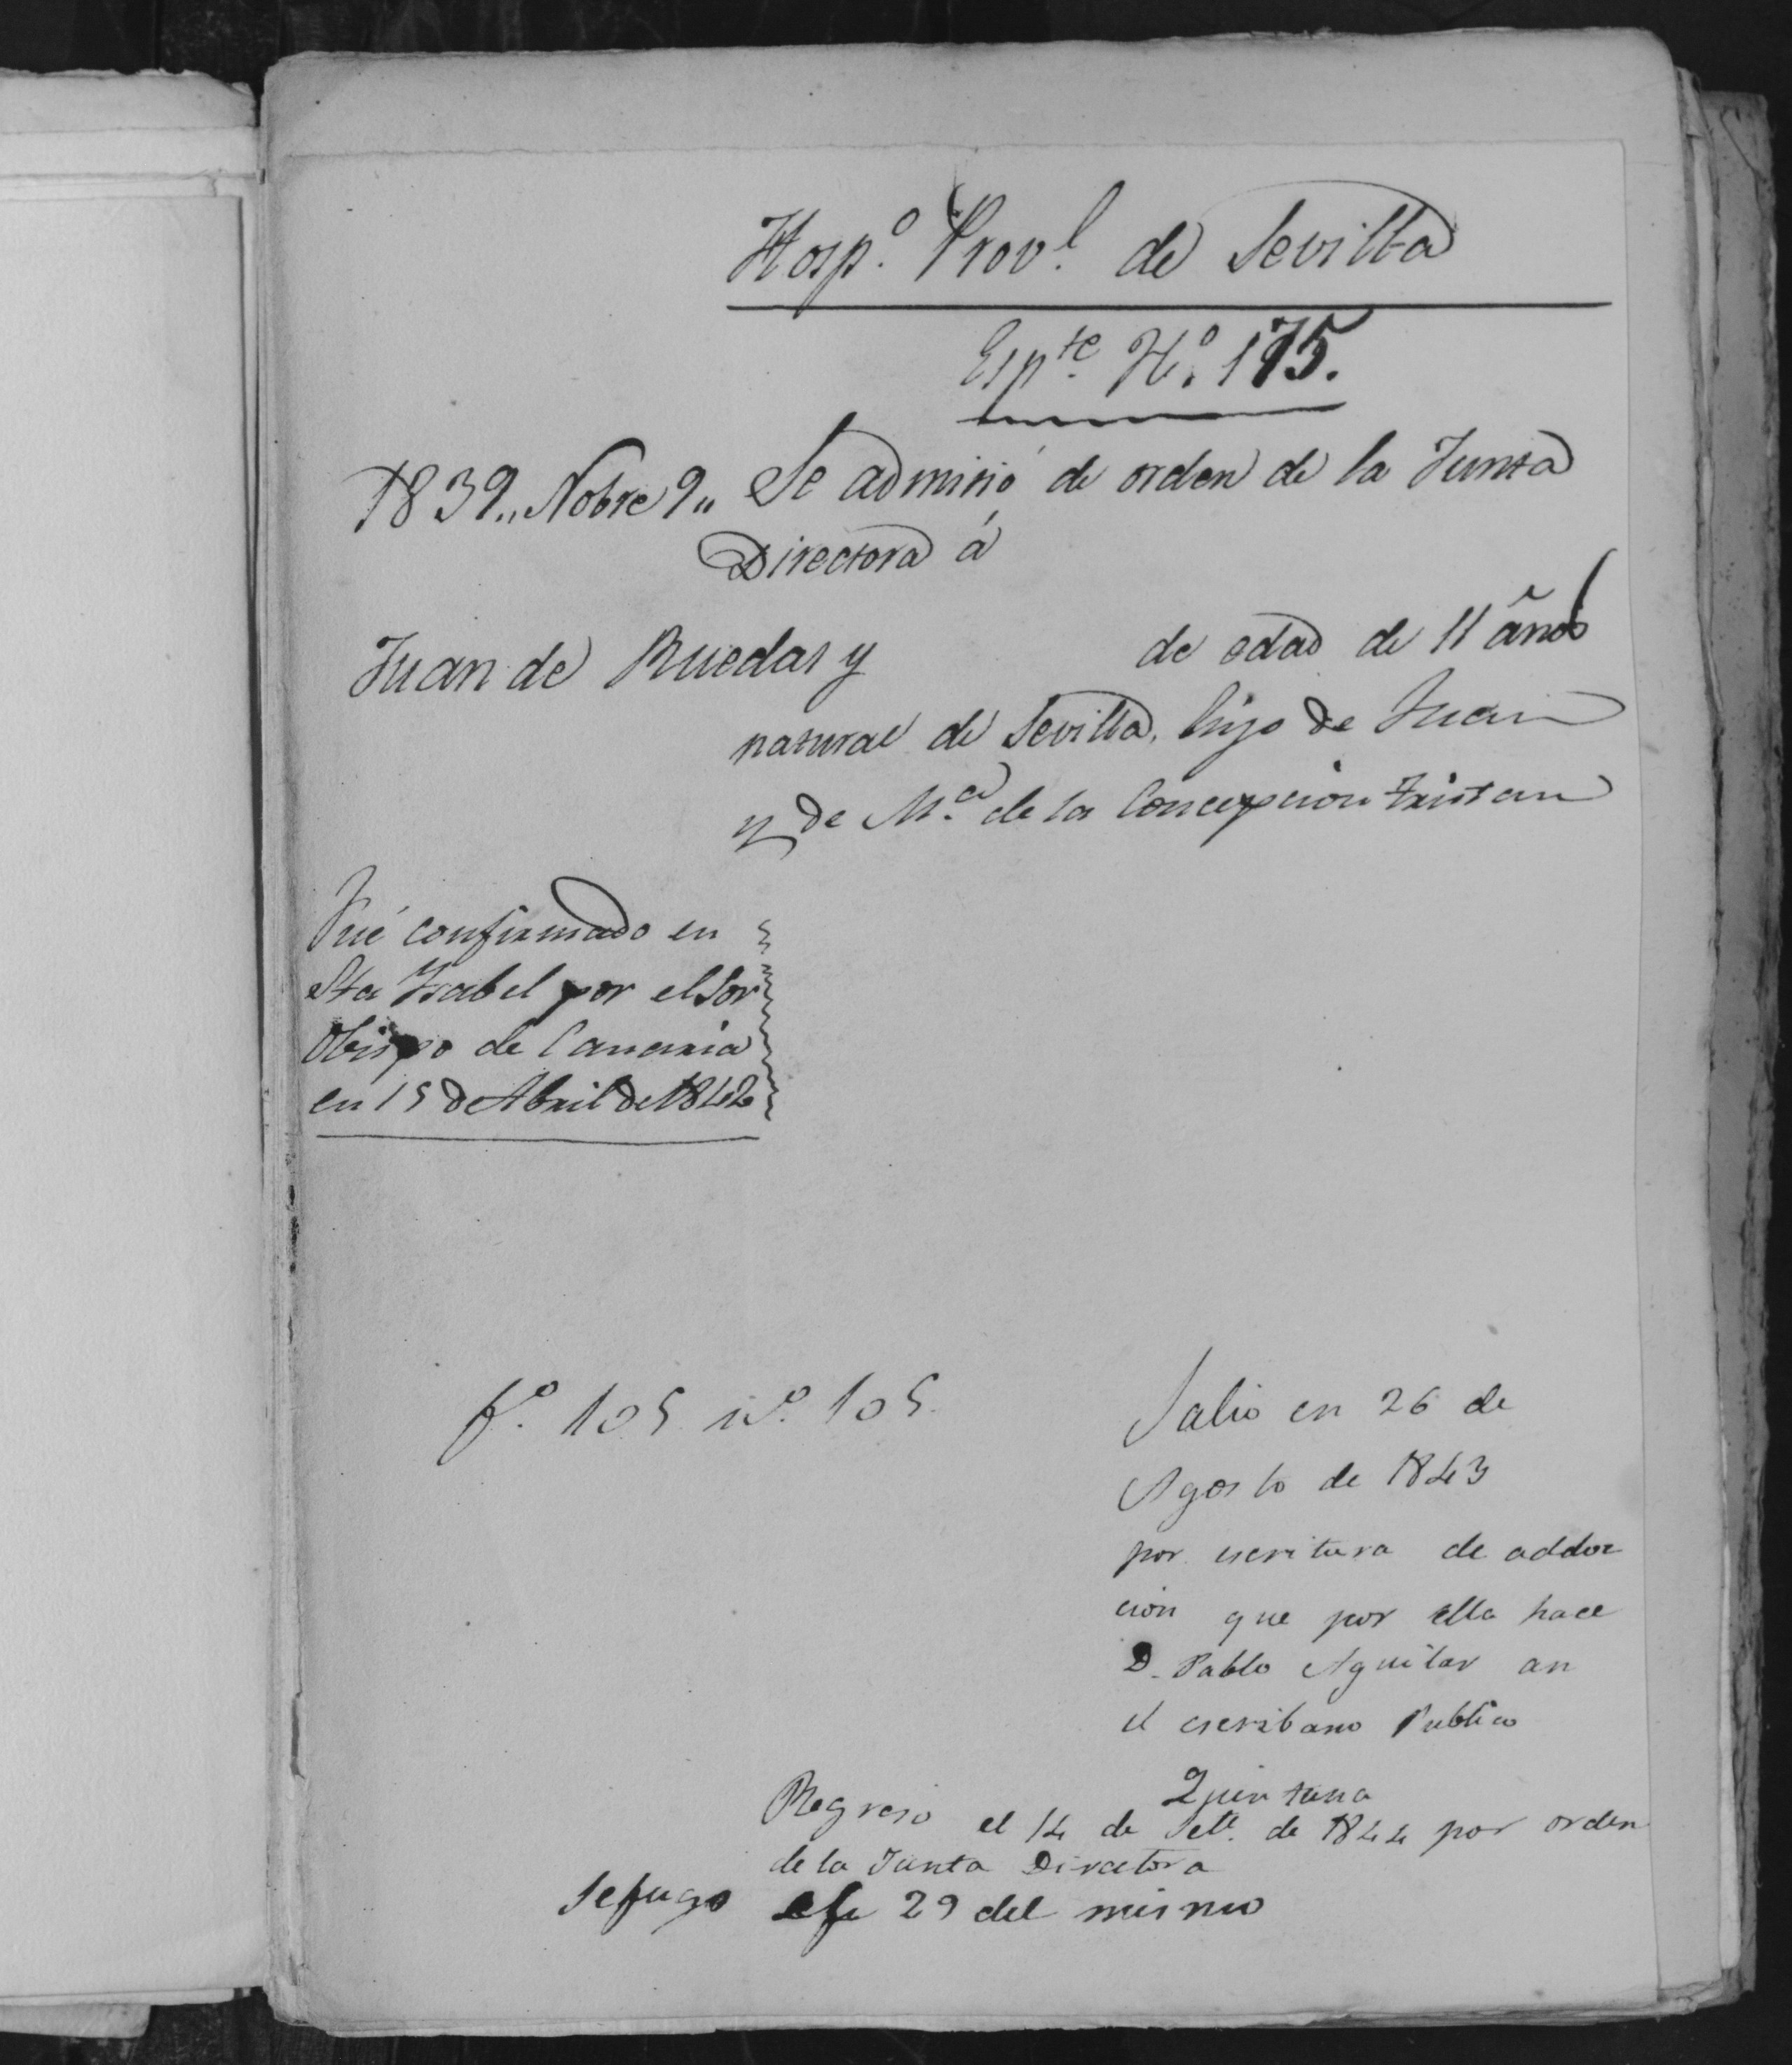 Hosp.º Prov.l de Sevilla
Esp.te N.º 175.
1839.. Nobre 9.. Se admitió de orden de la Junta
Directora á
Juan de Ruedas y de edad de 11 años
natural de Sevilla, hijo de Juan
y de M.ª de la Concepcion Tristan
Fué confirmado en
Sta Ysabel por el Sor
Obispo de Canaria
en 15 de Abril de 1842
f.º 105 nº. 105.
Salio en 26 de
Agosto de 1843
por escritura de addoc
cion que por ella hace
D. Pablo Aguilar an
el escribano Publico
Quintana
Regreso el 14 de Set.e de 1844 por orden
de la Junta Directora
Se fugo el 29 del mismo